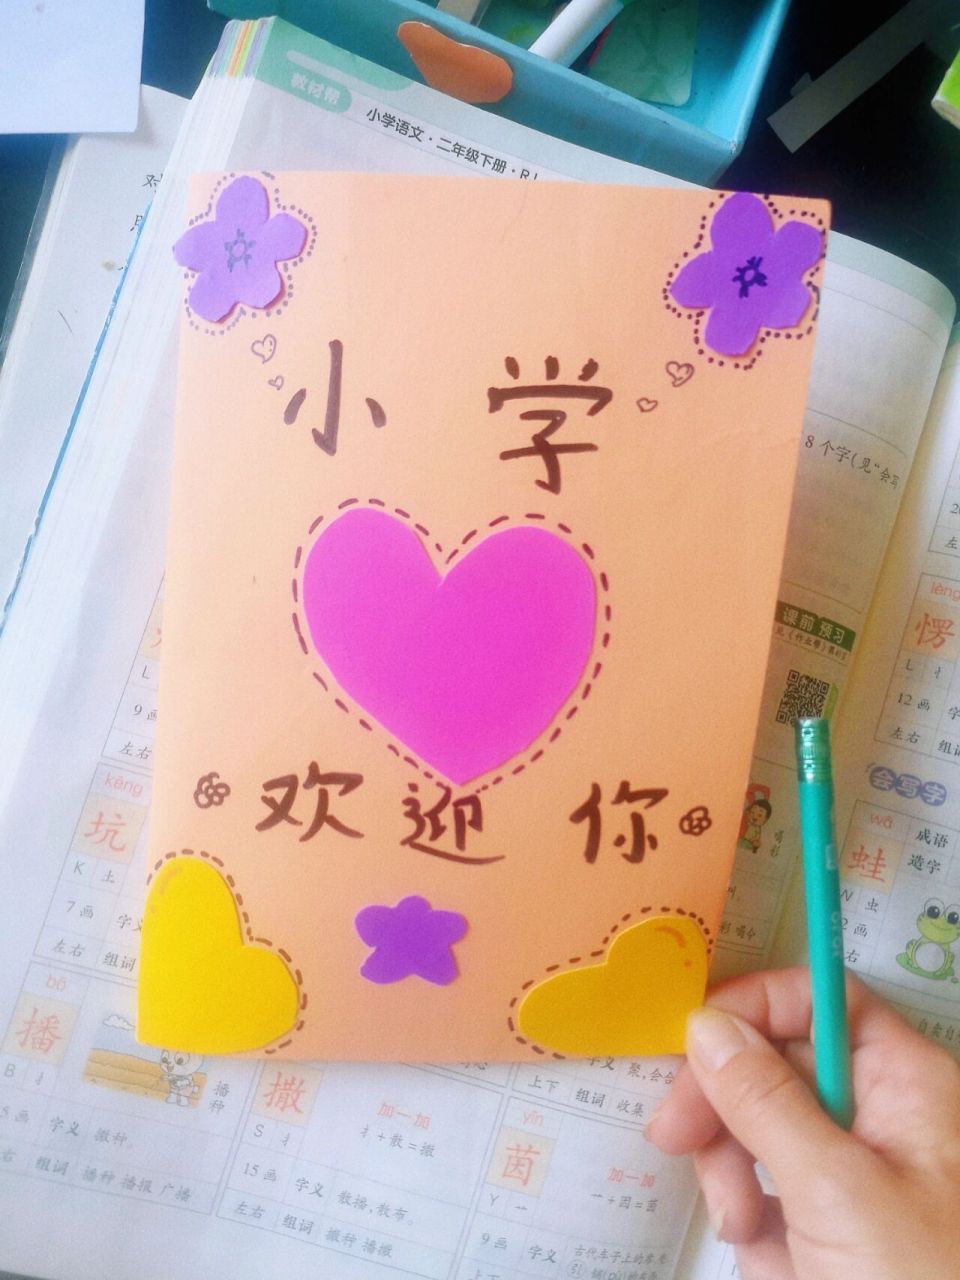 教材帮
小学语文·二年级下册·RJ
小 学
欢 迎 你
8个字(见“会写
课前 预习
lèng
愣
L 忄
12画
左右 组词
会写字
wā
蛙
成语
造字
虫
左右
kēng
坑
K 土
7画 字义
左右 组词
bō
播
B 扌
播种
字义 撒种
组词 播种 播报 广播
撒
S 扌
加一加
扌+散=撒
15画 字义 散播,散布。
左右 组词 撒种 播撒
字义 聚,会合
上下 组词 收集
yīn
茵
Y 艹
加一加
艹+因=茵
9画 字义
上下
9画
左右